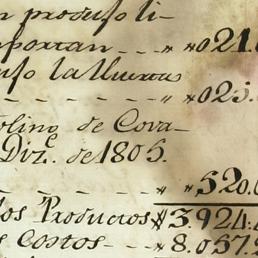 n produjo li-
mportan - - - " " 021.
nfo la Huertas
- - - - - " 025.
olino de Cova-
Diz.e de 1805.
- - - - " " 520.
los Productos $ 3.924.
s Costos - - - " 8.037.2